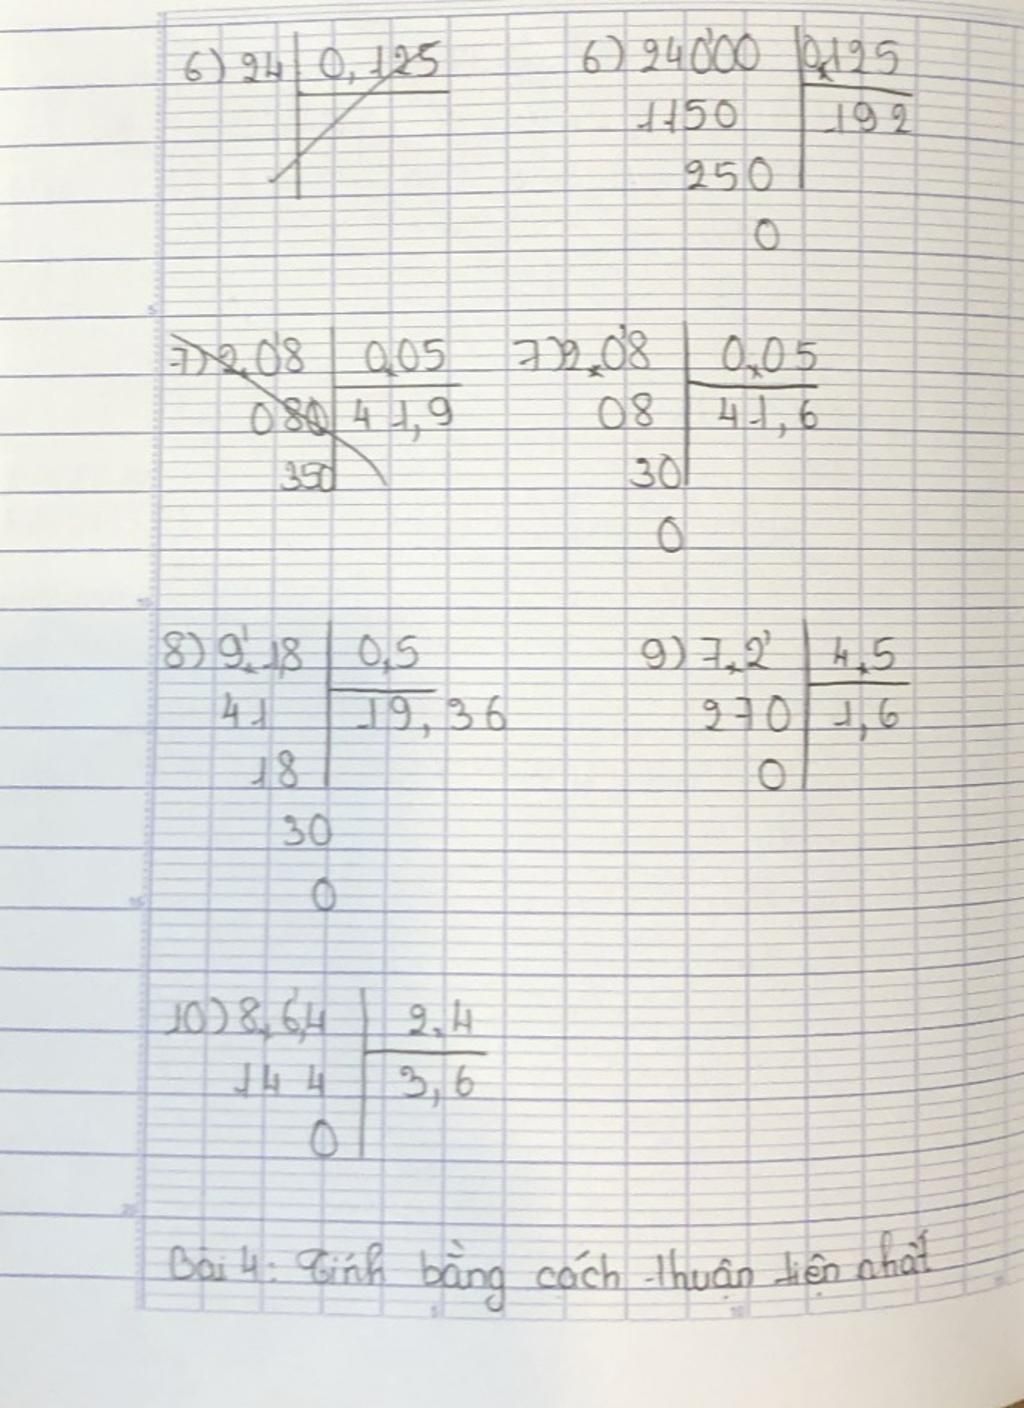 6) 24 0,125 6) 24000 0,125
1150 192
250
0
7) 2,08 0,05 7) 2,08 0,05
080 41,9 08 41,6
350 30
0
8) 9,18 0,5 9) 7,2 4,5
41 19,36 270 1,6
18 0
30
0
10) 8,64 2,4
144 3,6
0
Bài 4: Tính bằng cách thuận tiện nhất